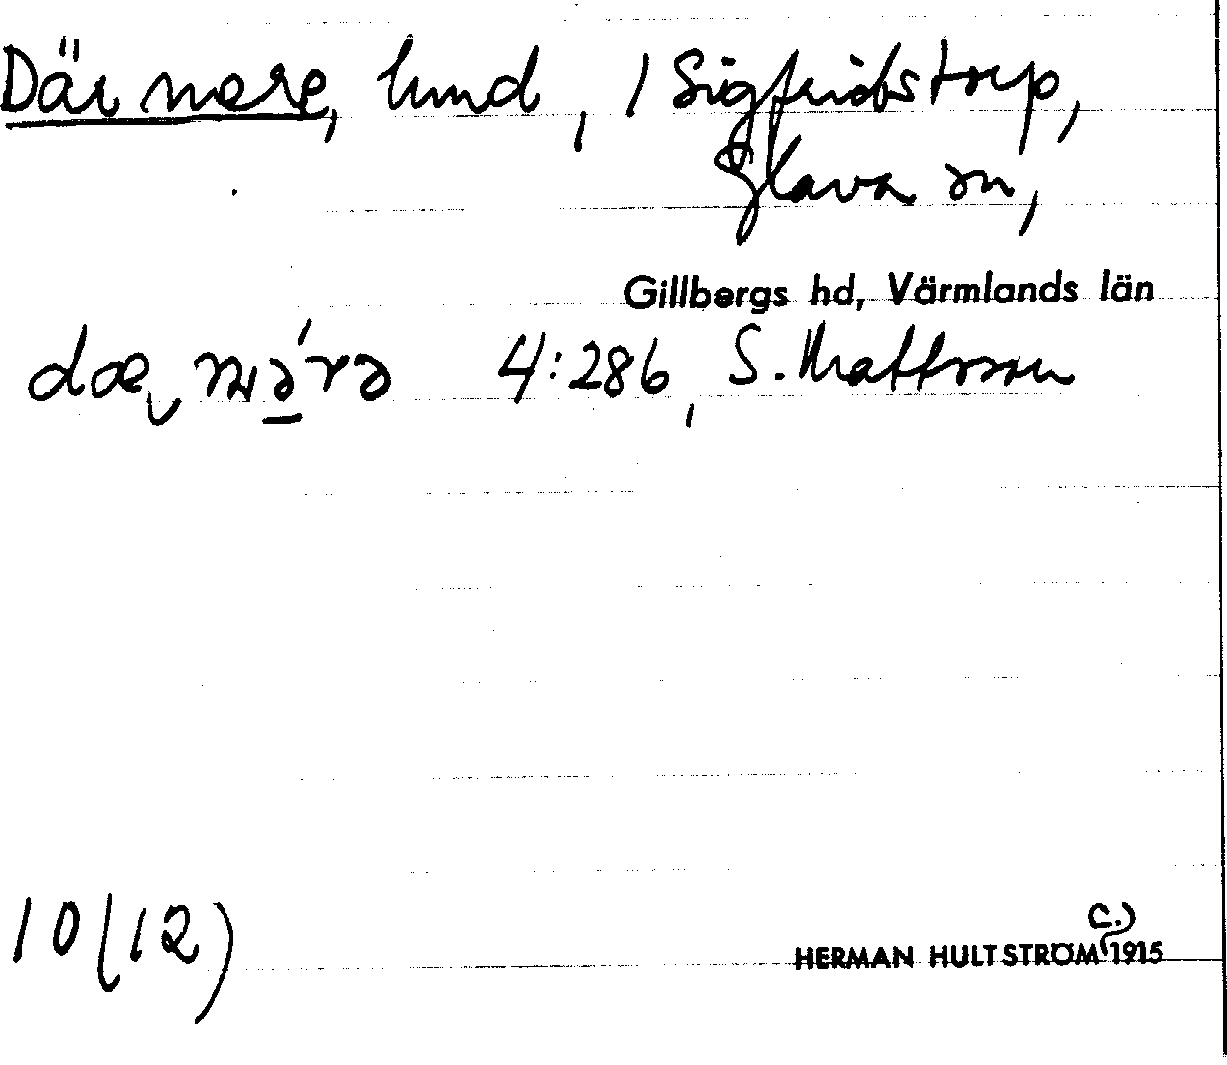 Där nere, lund, 1 Sigfridstorp,
Glava sn,
Gillbergs hd, Värmlands län
4:286, S. Mattsson
10(12)
c.)
HERMAN HULTSTRÖM 1915